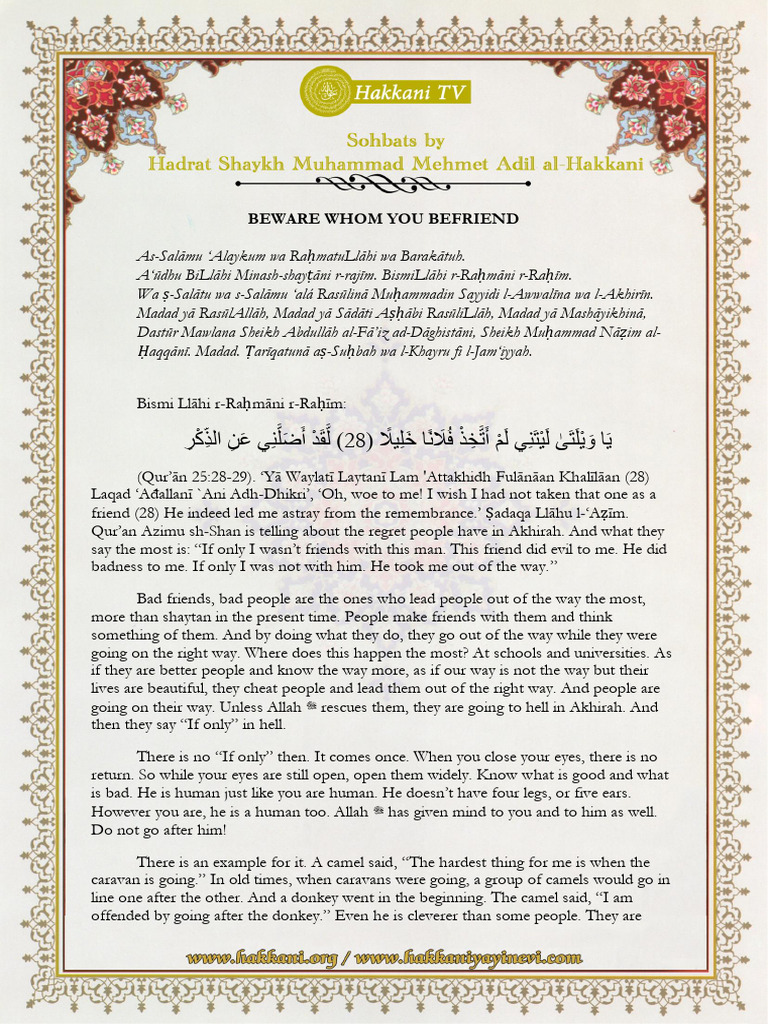 Hakkani TV
Sohbats by
Hadrat Shaykh Muhammad Mehmet Adil al-Hakkani
BEWARE WHOM YOU BEFRIEND
As-Salāmu ‘Alaykum wa RaḥmatuLlāhi wa Barakātuh.
A‘ūdhu BiLlāhi Minash-shayṭāni r-rajīm. BismiLlāhi r-Raḥmāni r-Raḥīm.
Wa ṣ-Salātu wa s-Salāmu ‘alá Rasūlinā Muḥammadin Sayyidi l-Awwalīna wa l-Akhirīn.
Madad yā RasūlAllāh, Madad yā Sādāti Aṣḥābi RasūliLlāh, Madad yā Mashāyikhinā,
Dastūr Mawlana Sheikh Abdullāh al-Fā’iz ad-Dāghistāni, Sheikh Muḥammad Nāẓim al-
Ḥaqqānī. Madad. Ṭarīqatunā aṣ-Suḥbah wa l-Khayru fi l-Jam‘iyyah.
Bismi Llāhi r-Raḥmāni r-Raḥīm:
يَا وَيْلَتَىٰ لَيْتَنِي لَمْ أَتَّخِذْ فُلَانًا خَلِيلًا (28) لَّقَدْ أَضَلَّنِي عَنِ الذِّكْرِ
(Qur’ān 25:28-29). ‘Yā Waylatī Laytanī Lam 'Attakhidh Fulānāan Khalīlāan (28)
Laqad ‘Ađallanī `Ani Adh-Dhikri’, ‘Oh, woe to me! I wish I had not taken that one as a
friend (28) He indeed led me astray from the remembrance.’ Ṣadaqa Llāhu l-‘Aẓīm.
Qur’an Azimu sh-Shan is telling about the regret people have in Akhirah. And what they
say the most is: “If only I wasn’t friends with this man. This friend did evil to me. He did
badness to me. If only I was not with him. He took me out of the way.”
Bad friends, bad people are the ones who lead people out of the way the most,
more than shaytan in the present time. People make friends with them and think
something of them. And by doing what they do, they go out of the way while they were
going on the right way. Where does this happen the most? At schools and universities. As
if they are better people and know the way more, as if our way is not the way but their
lives are beautiful, they cheat people and lead them out of the right way. And people are
going on their way. Unless Allah ﷻ rescues them, they are going to hell in Akhirah. And
then they say “If only” in hell.
There is no “If only” then. It comes once. When you close your eyes, there is no
return. So while your eyes are still open, open them widely. Know what is good and what
is bad. He is human just like you are human. He doesn’t have four legs, or five ears.
However you are, he is a human too. Allah ﷻ has given mind to you and to him as well.
Do not go after him!
There is an example for it. A camel said, “The hardest thing for me is when the
caravan is going.” In old times, when caravans were going, a group of camels would go in
line one after the other. And a donkey went in the beginning. The camel said, “I am
offended by going after the donkey.” Even he is cleverer than some people. They are
www.hakkani.org / www.hakkaniyayinevi.com